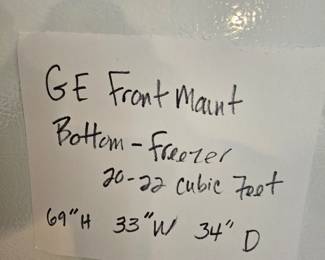 GE Front Mount
Bottom-Freezer
20-22 cubic Feet
69"H 33"W 34" D